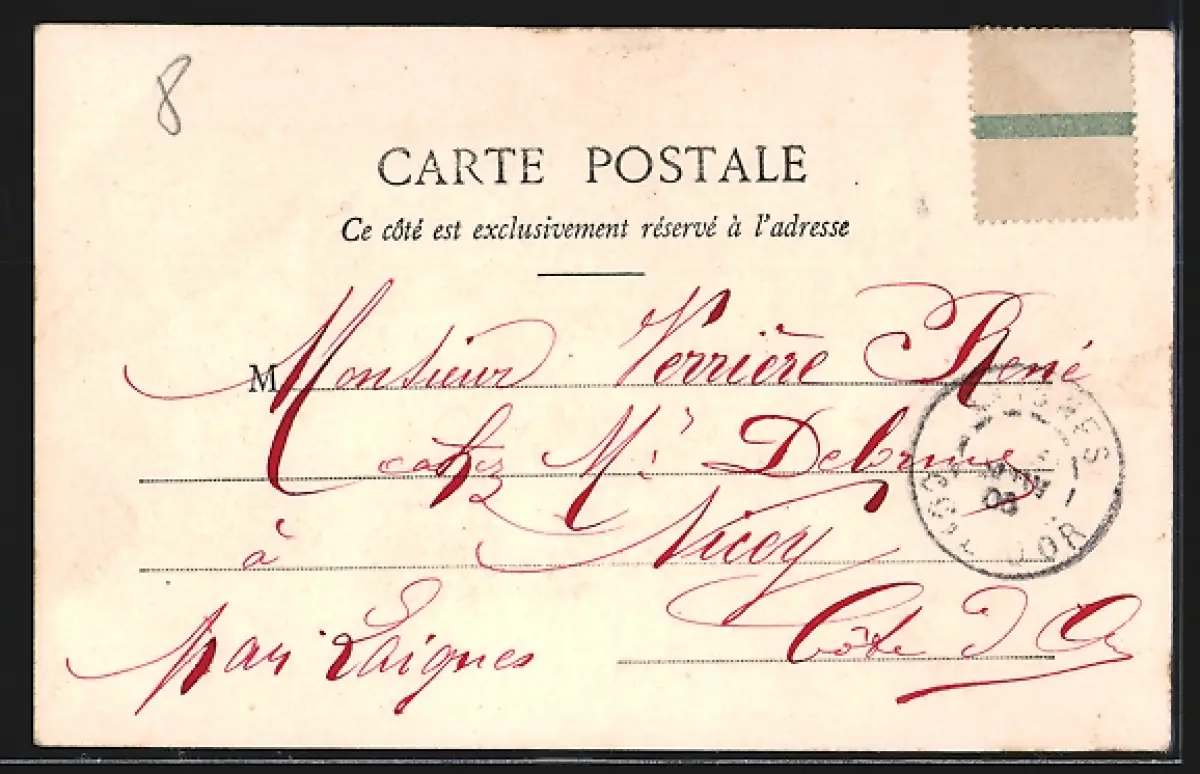 8
CARTE POSTALE
Ce côté est exclusivement réservé à l'adresse
M Monsieur Verrière René
chez Mr
à Nicey
par Laignes Côte d'Or